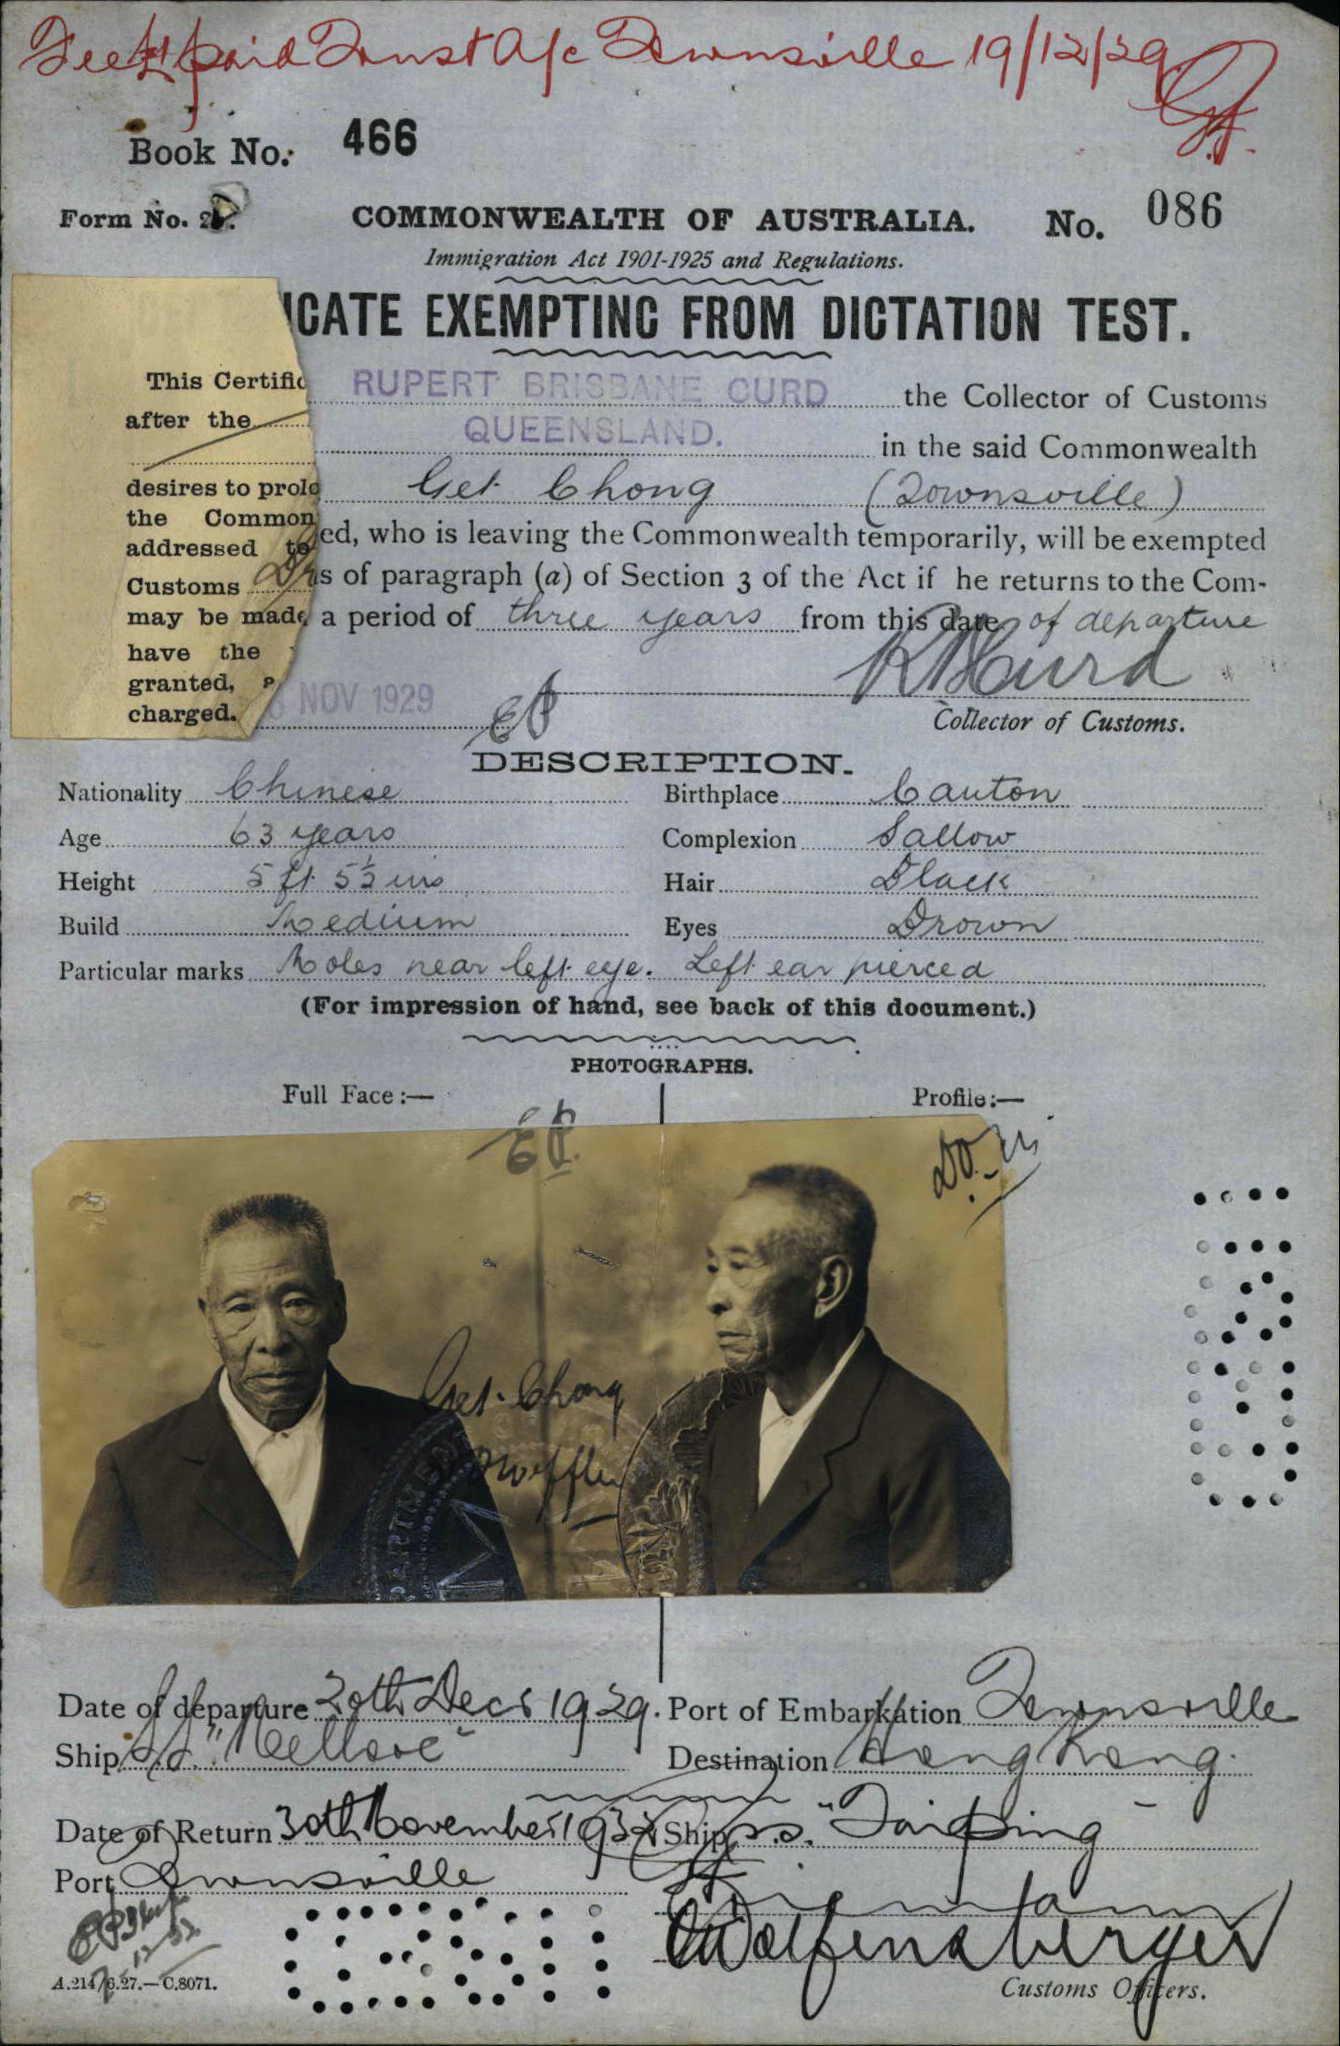 Fee £1 paid Trust A/c Townsville 19/12/29.
Book No. 466
Form No. 2
COMMONWEALTH OF AUSTRALIA.
No. 086
Immigration Act 1901-1925 and Regulations.
ICATE EXEMPTING FROM DICTATION TEST.
This Certific
after the
desires to prolo
the Common
addressed to
Customs
may be made
have the
granted,
charged.
RUPERT BRISBANE CURD the Collector of Customs
QUEENSLAND. in the said Commonwealth
Get Chong (Townsville)
ed, who is leaving the Commonwealth temporarily, will be exempted
s of paragraph (a) of Section 3 of the Act if he returns to the Com-
a period of three years from this date of departure
NOV 1929
RBCurd
Collector of Customs.
DESCRIPTION.
Nationality Chinese Birthplace Canton
Age 63 years Complexion Sallow
Height 5 ft 5½ ins Hair Black
Build Medium Eyes Brown
Particular marks Moles near left eye. Left ear pierced
(For impression of hand, see back of this document.)
PHOTOGRAPHS.
Full Face:— Profile:—
Get Chong
Date of departure 20th Decr 1929. Port of Embarkation Townsville
Ship S.S. "Mellore" Destination Hong Kong.
Date of Return 30th November 1932 Ship s.s. "Taiping"
Port Townsville
Wolfensberger
A.214/6.27.—C.8071.
Customs Officers.